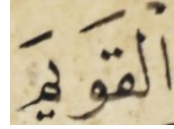 اْلقَويمَ